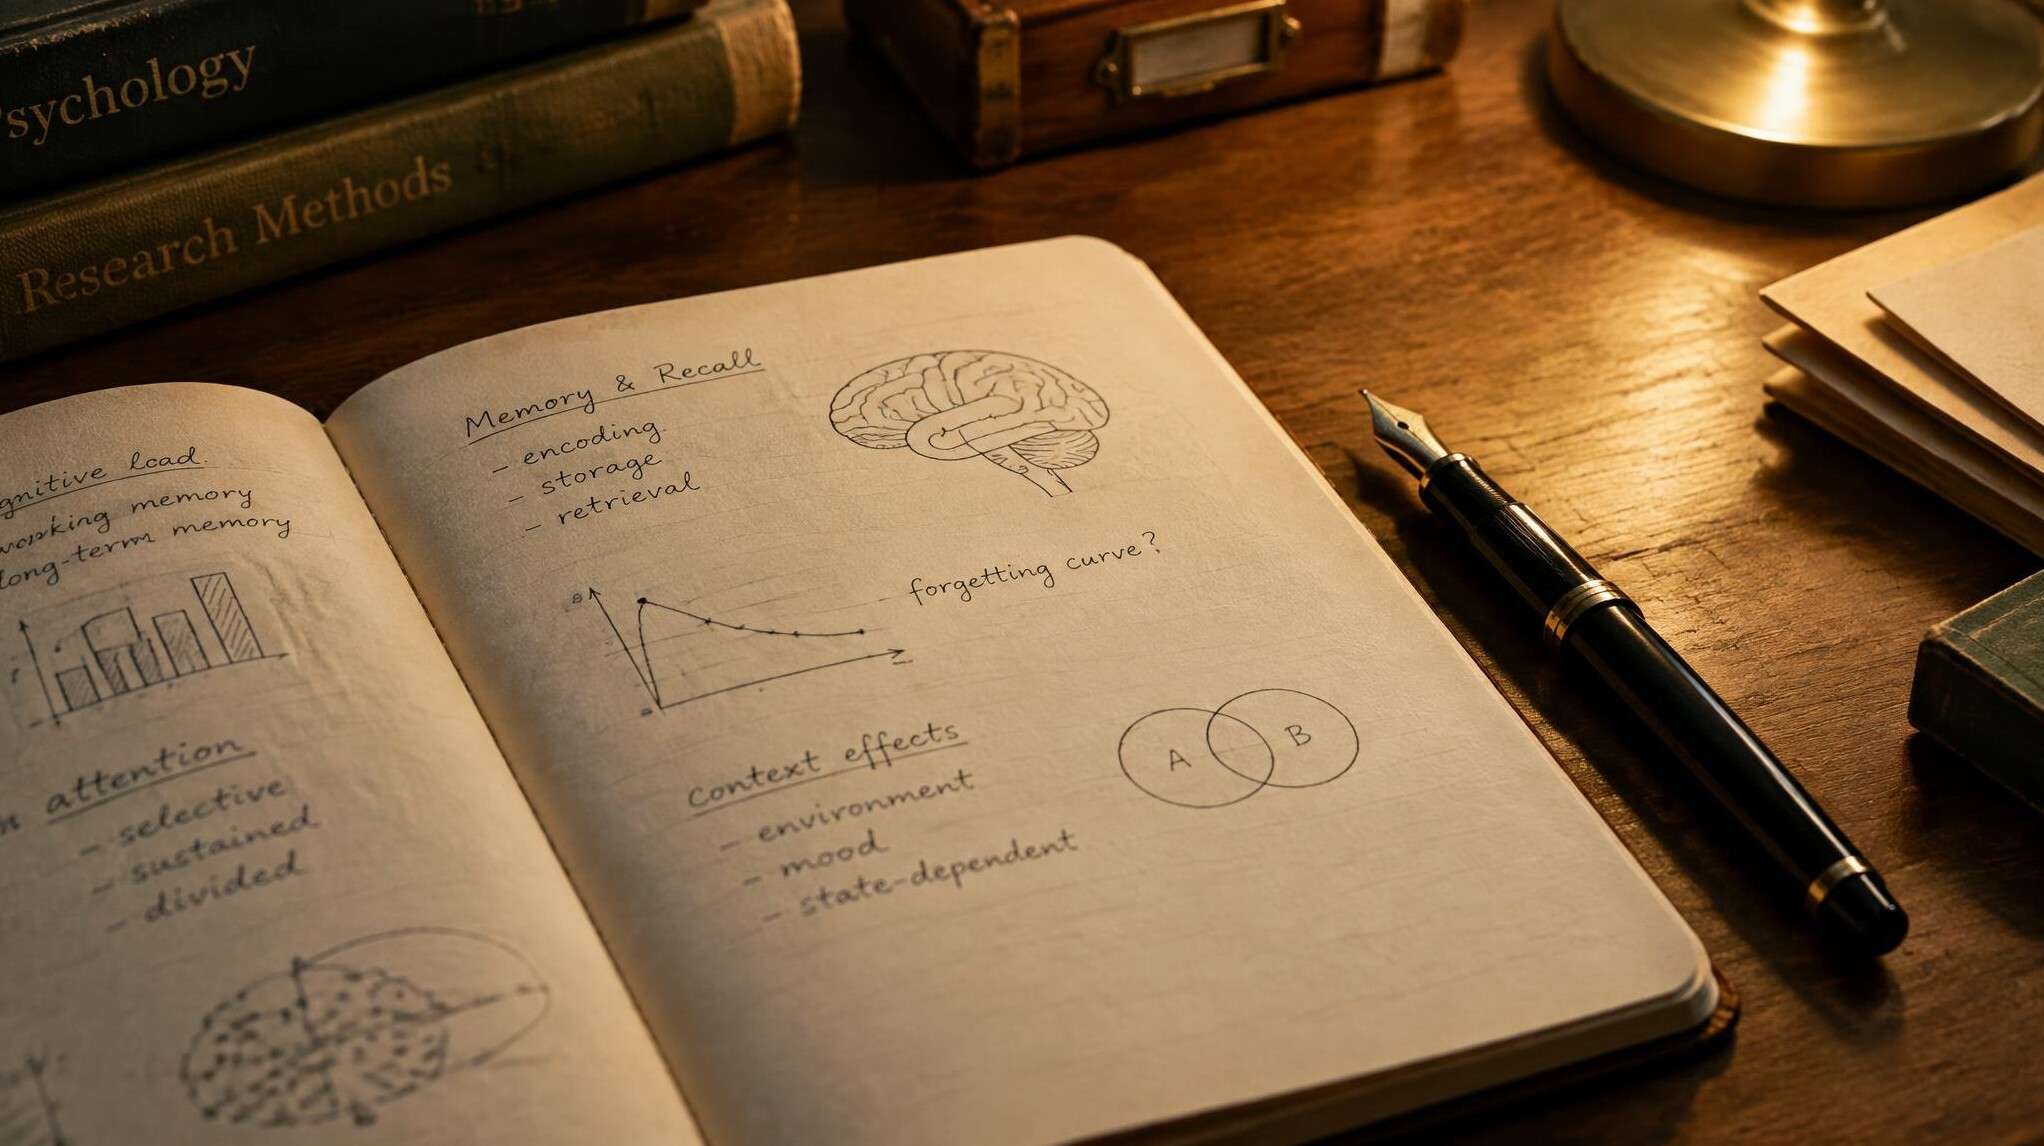 Psychology
Research Methods
gnitive load.
working memory
long-term memory
attention
- selective
- sustained
- divided
Memory & Recall
- encoding
- storage
- retrieval
forgetting curve?
context effects
- environment
- mood
- state-dependent
A
B